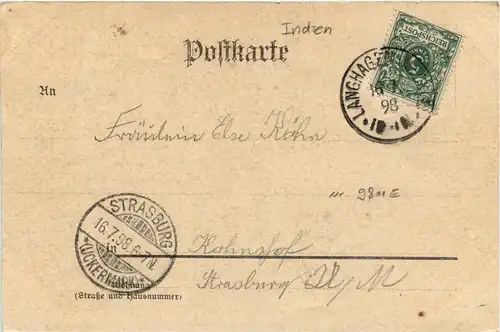 Indien
Postkarte
An
REICHSPOST
LANGHAGEN
16 7
98
Fräulein Else Köhn
nr. 98ME
STRASBURG
16.7.98.6-7N.
*(UCKERMARK)*
in Kohnshof
Strasburg U/M
Wohnung
(Straße und Hausnummer)